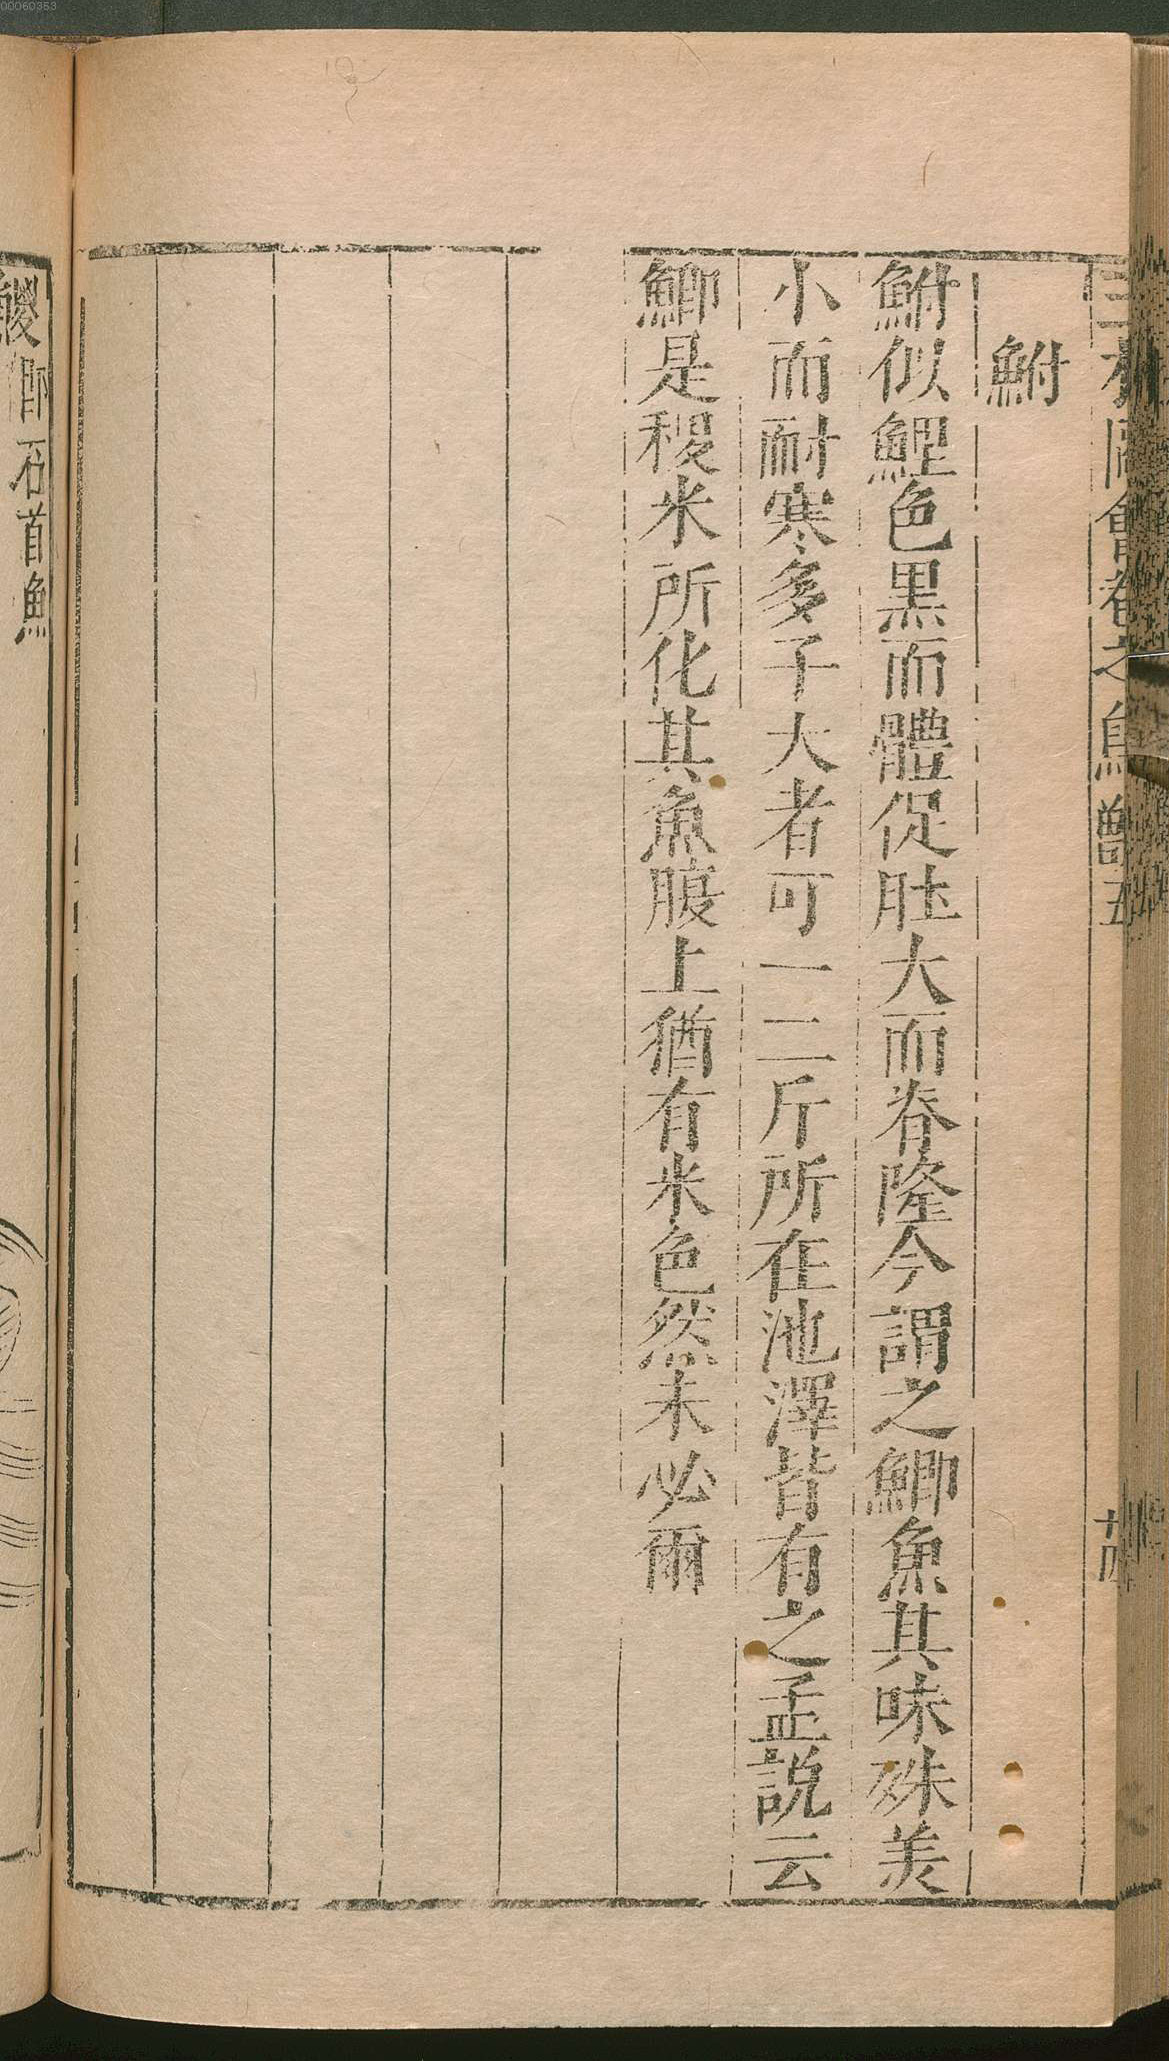 00060353
三才圖會卷之鳥獸五
鮒
鮒似鯉色黒而體促肚大而脊隆今謂之鯽魚其味殊美
小而耐寒多子大者可一二斤所在池澤皆有之孟說云
鯽是稷米所化其魚腹上猶有米色然未必爾
鯼即石首魚